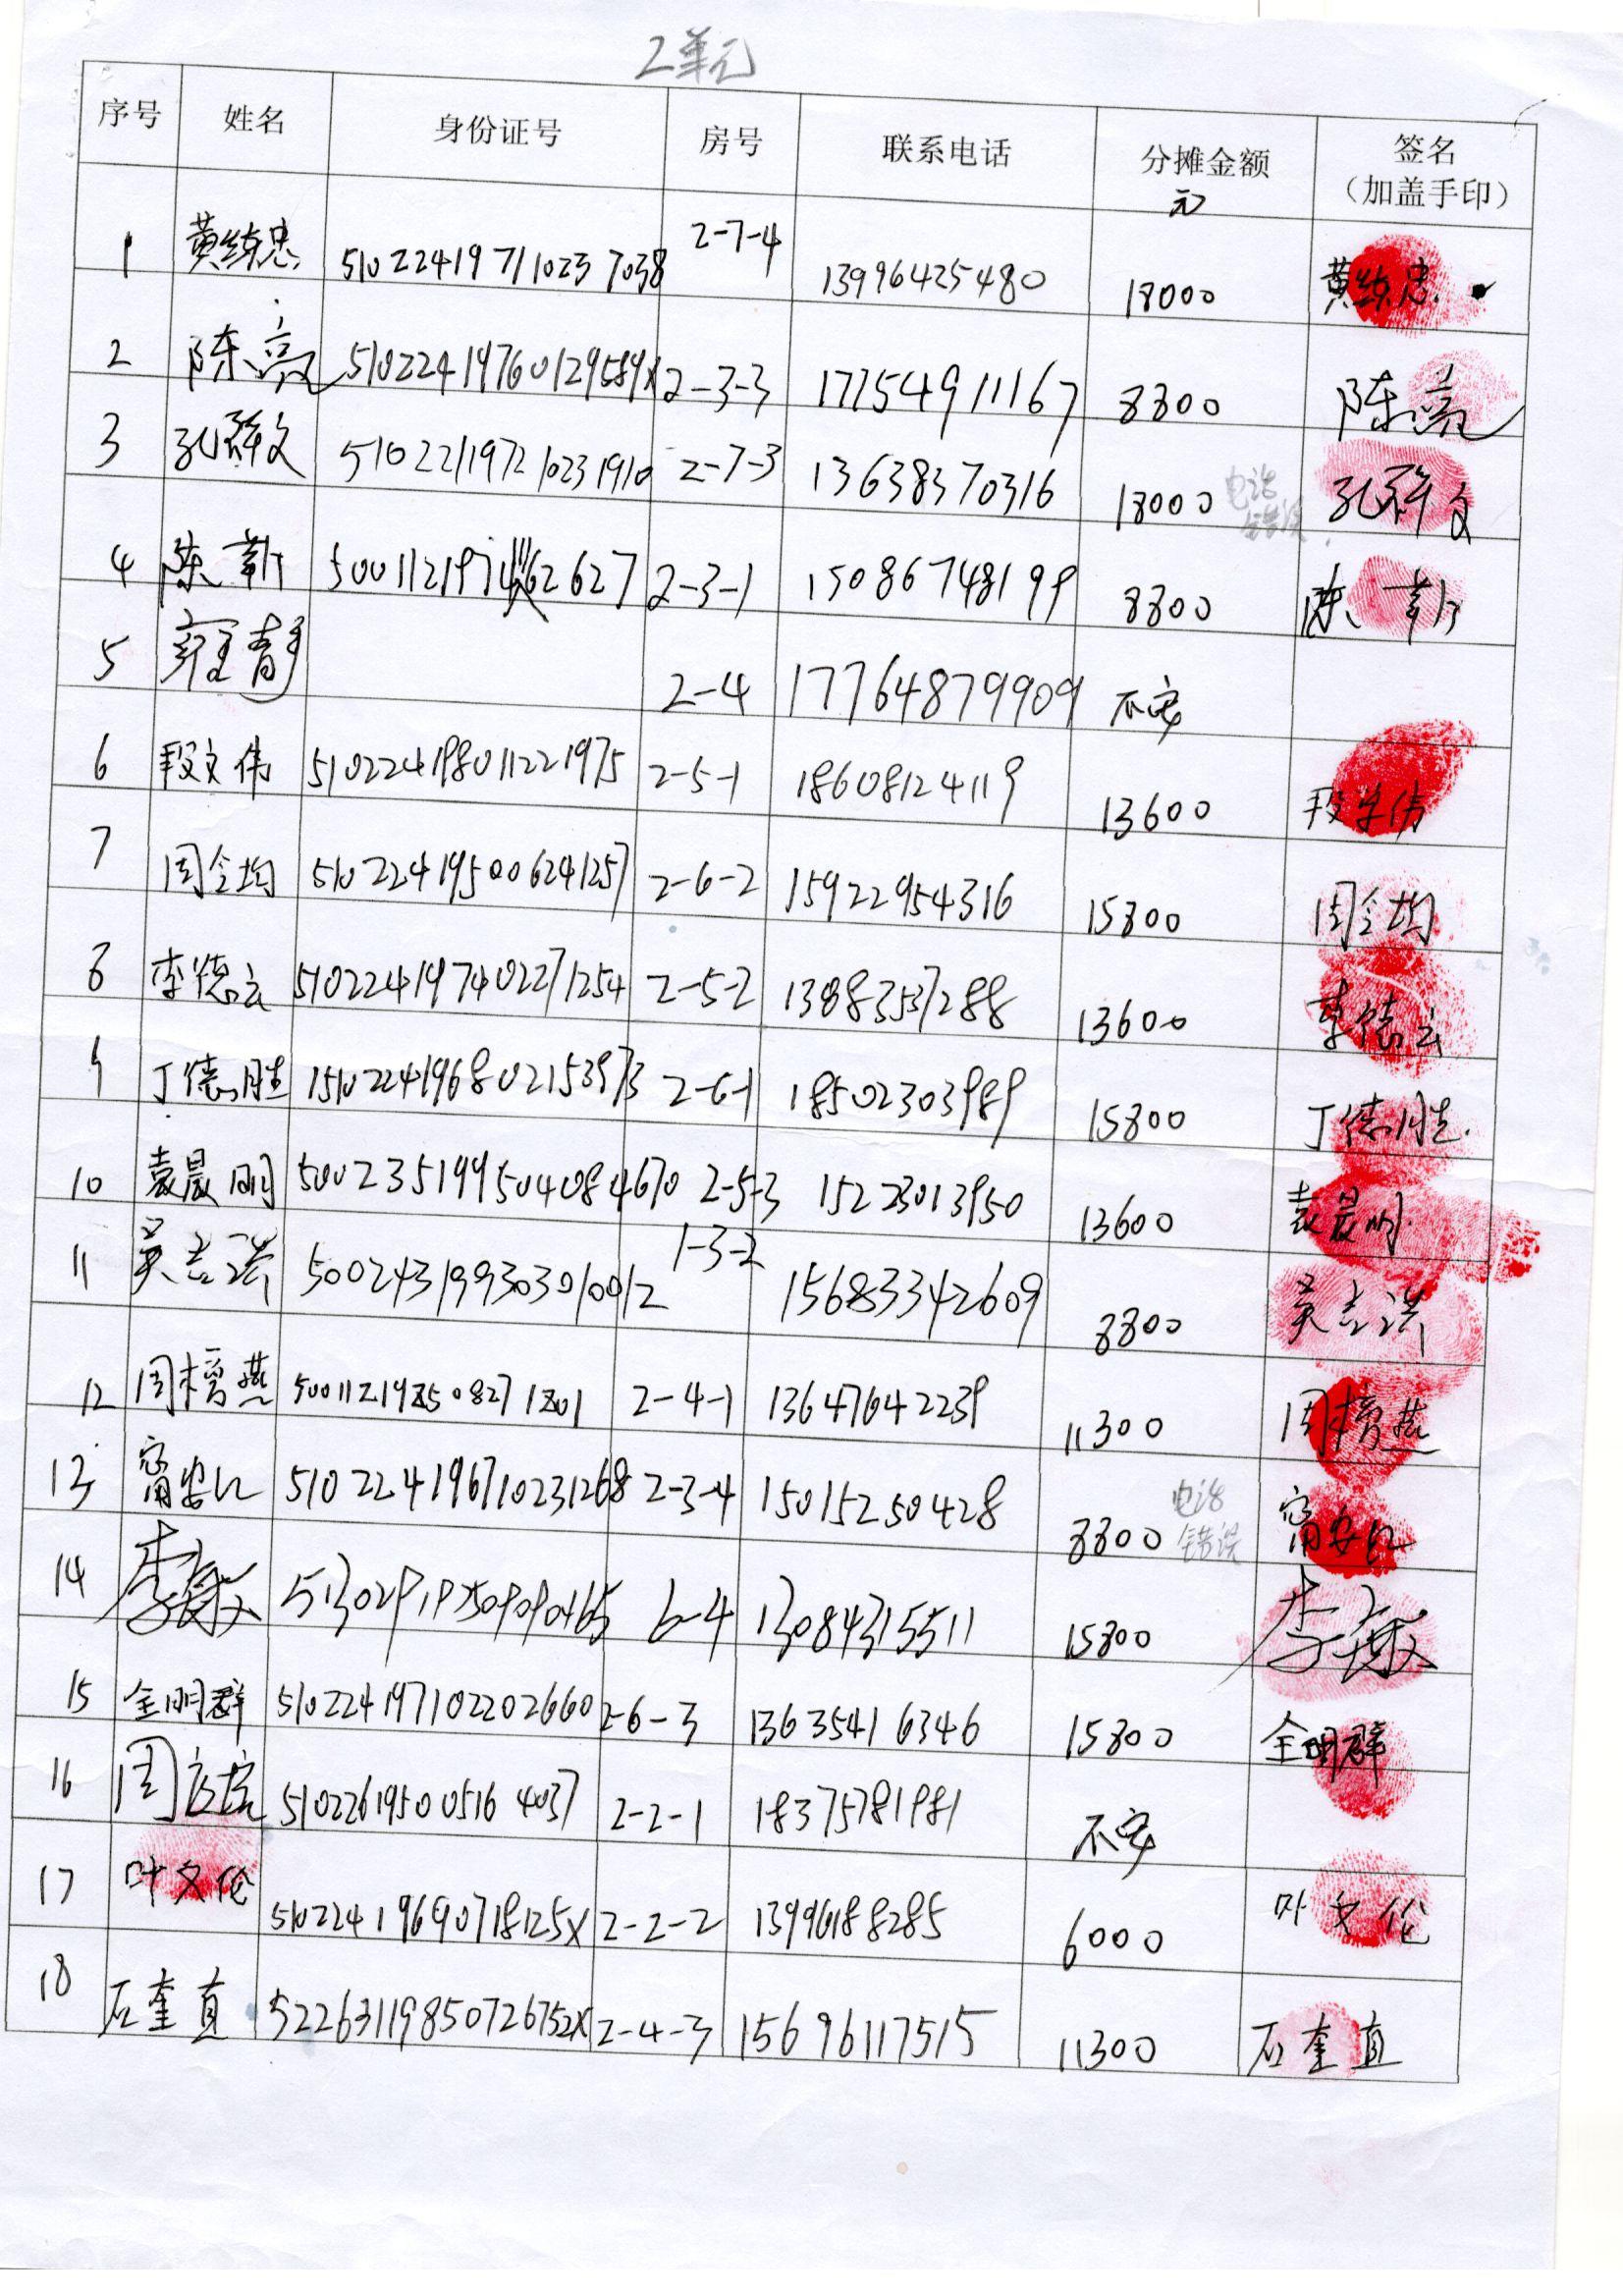 2单元
序号 姓名 身份证号 房号 联系电话 分摊金额 元 签名 （加盖手印）
1 黄练忠 510224197110237038 2-7-4 13996425480 18000 黄练忠
2 陈亮 51022419760129589X 2-3-3 17754911167 8800 陈亮
3 孔祥文 510221197210231910 2-7-3 13638370316 18000 电话错误 孔祥文
4 陈 2-3-1 15086748199 8800 陈
5 雍静 2-4 17764879909 不安
6 段文伟 510224198011221975 2-5-1 18608124119 13600 段文伟
7 周全均 510224195006241257 2-6-2 15922954316 15800 周全均
8 李德云 510224197402271254 2-5-2 13883537288 13600 李德云
9 丁德胜 510224196802153973 2-6-1 18502303989 15800 丁德胜
10 袁晨明 500235199504084670 2-5-3 15223013950 13600 袁晨明
11 吴志洪 500243199303010012 1-3-2 15683342609 8800 吴志洪
12 周 燕 2-4-1 13647642239 11300 周 燕
13 甯安仁 510224196710231268 2-3-4 15015250428 8800 电话错误 甯安仁
14 李敏 6-4 13084315511 15800 李敏
15 全明群 510224197102202660 2-6-3 13635416346 15800 全明群
16 周 510226195005164037 2-2-1 18375781981 不安
17 叶文伦 51022419690718125X 2-2-2 13996188285 6000 叶文伦
18 石奎直 52263119850726752X 2-4-3 15696117515 11300 石奎直